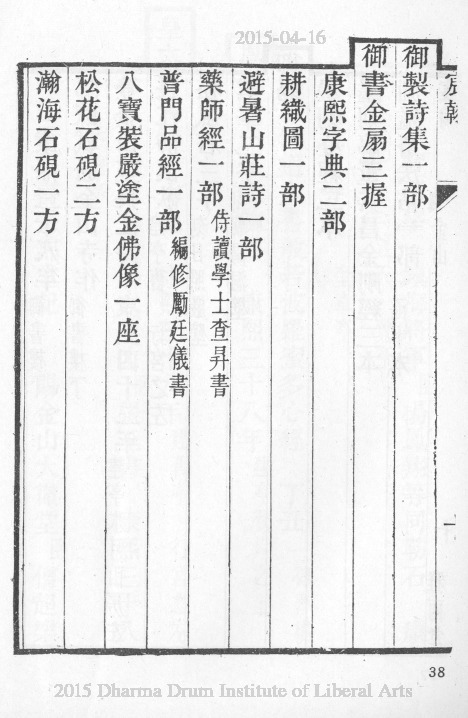 2015-04-16
宸翰
御製詩集一部
御書金扇三握
康熙字典二部
耕織圖一部
避暑山莊詩一部
藥師經一部 侍讀學士查昇書
普門品經一部 編修勵廷儀書
八寶裝嚴塗金佛像一座
松花石硯二方
瀚海石硯一方
38
2015 Dharma Drum Institute of Liberal Arts